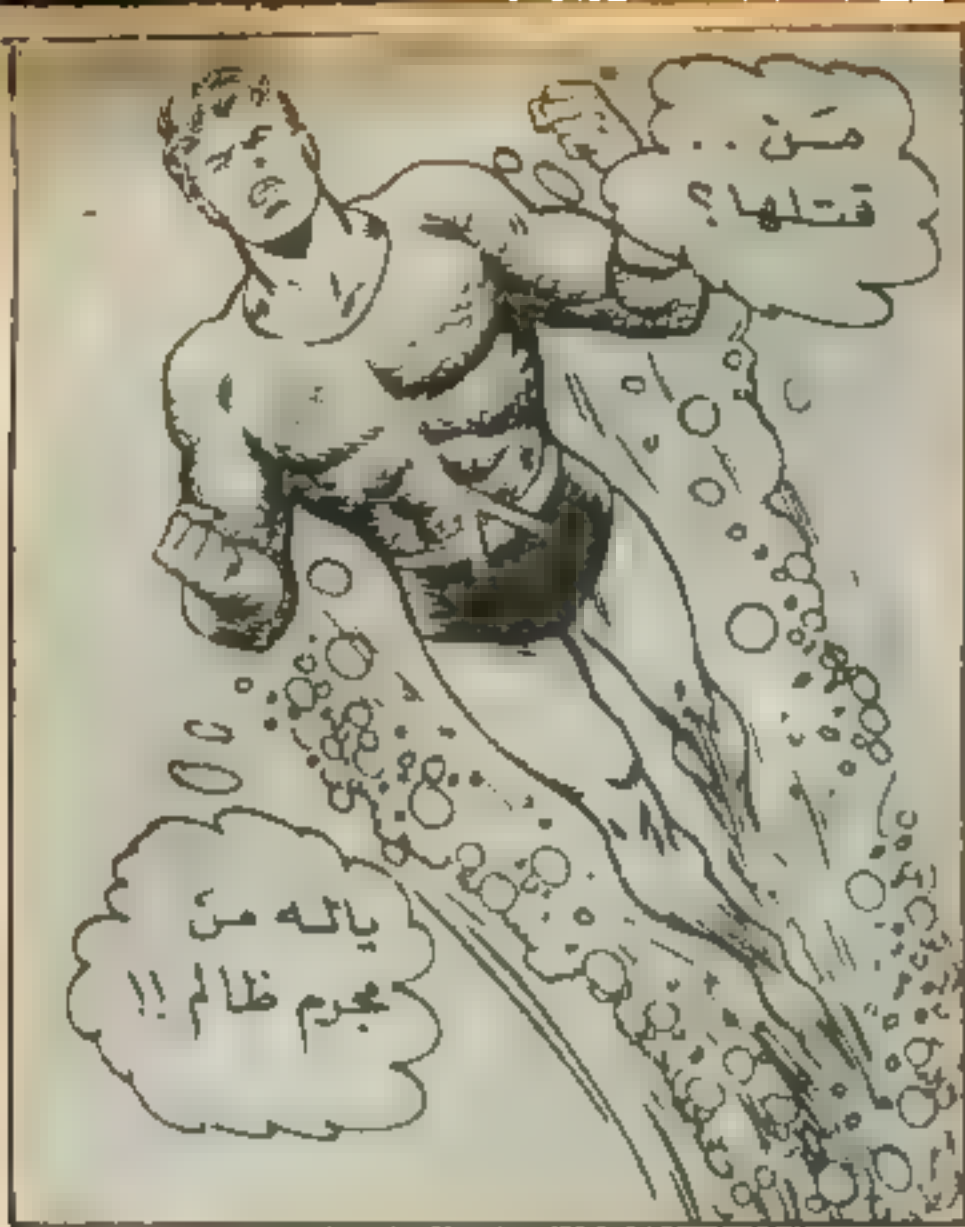 مَنْ . .
قتلها ؟
ياله من
مجرم ظالم !!